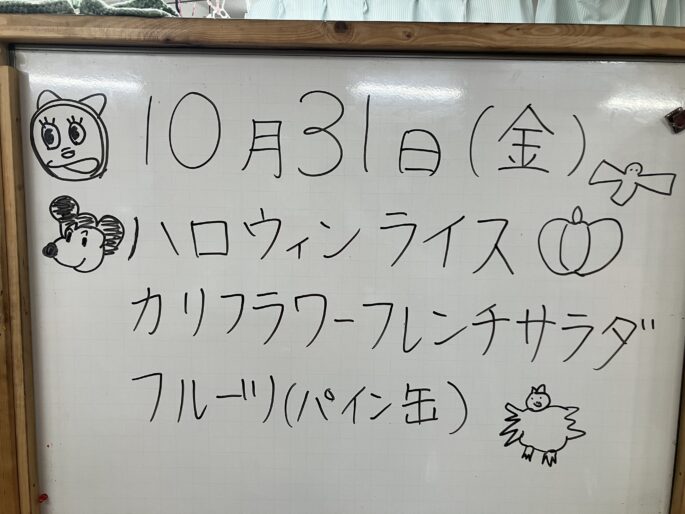 10月31日(金)
ハロウィンライス
カリフラワーフレンチサラダ
フルーツ(パイン缶)